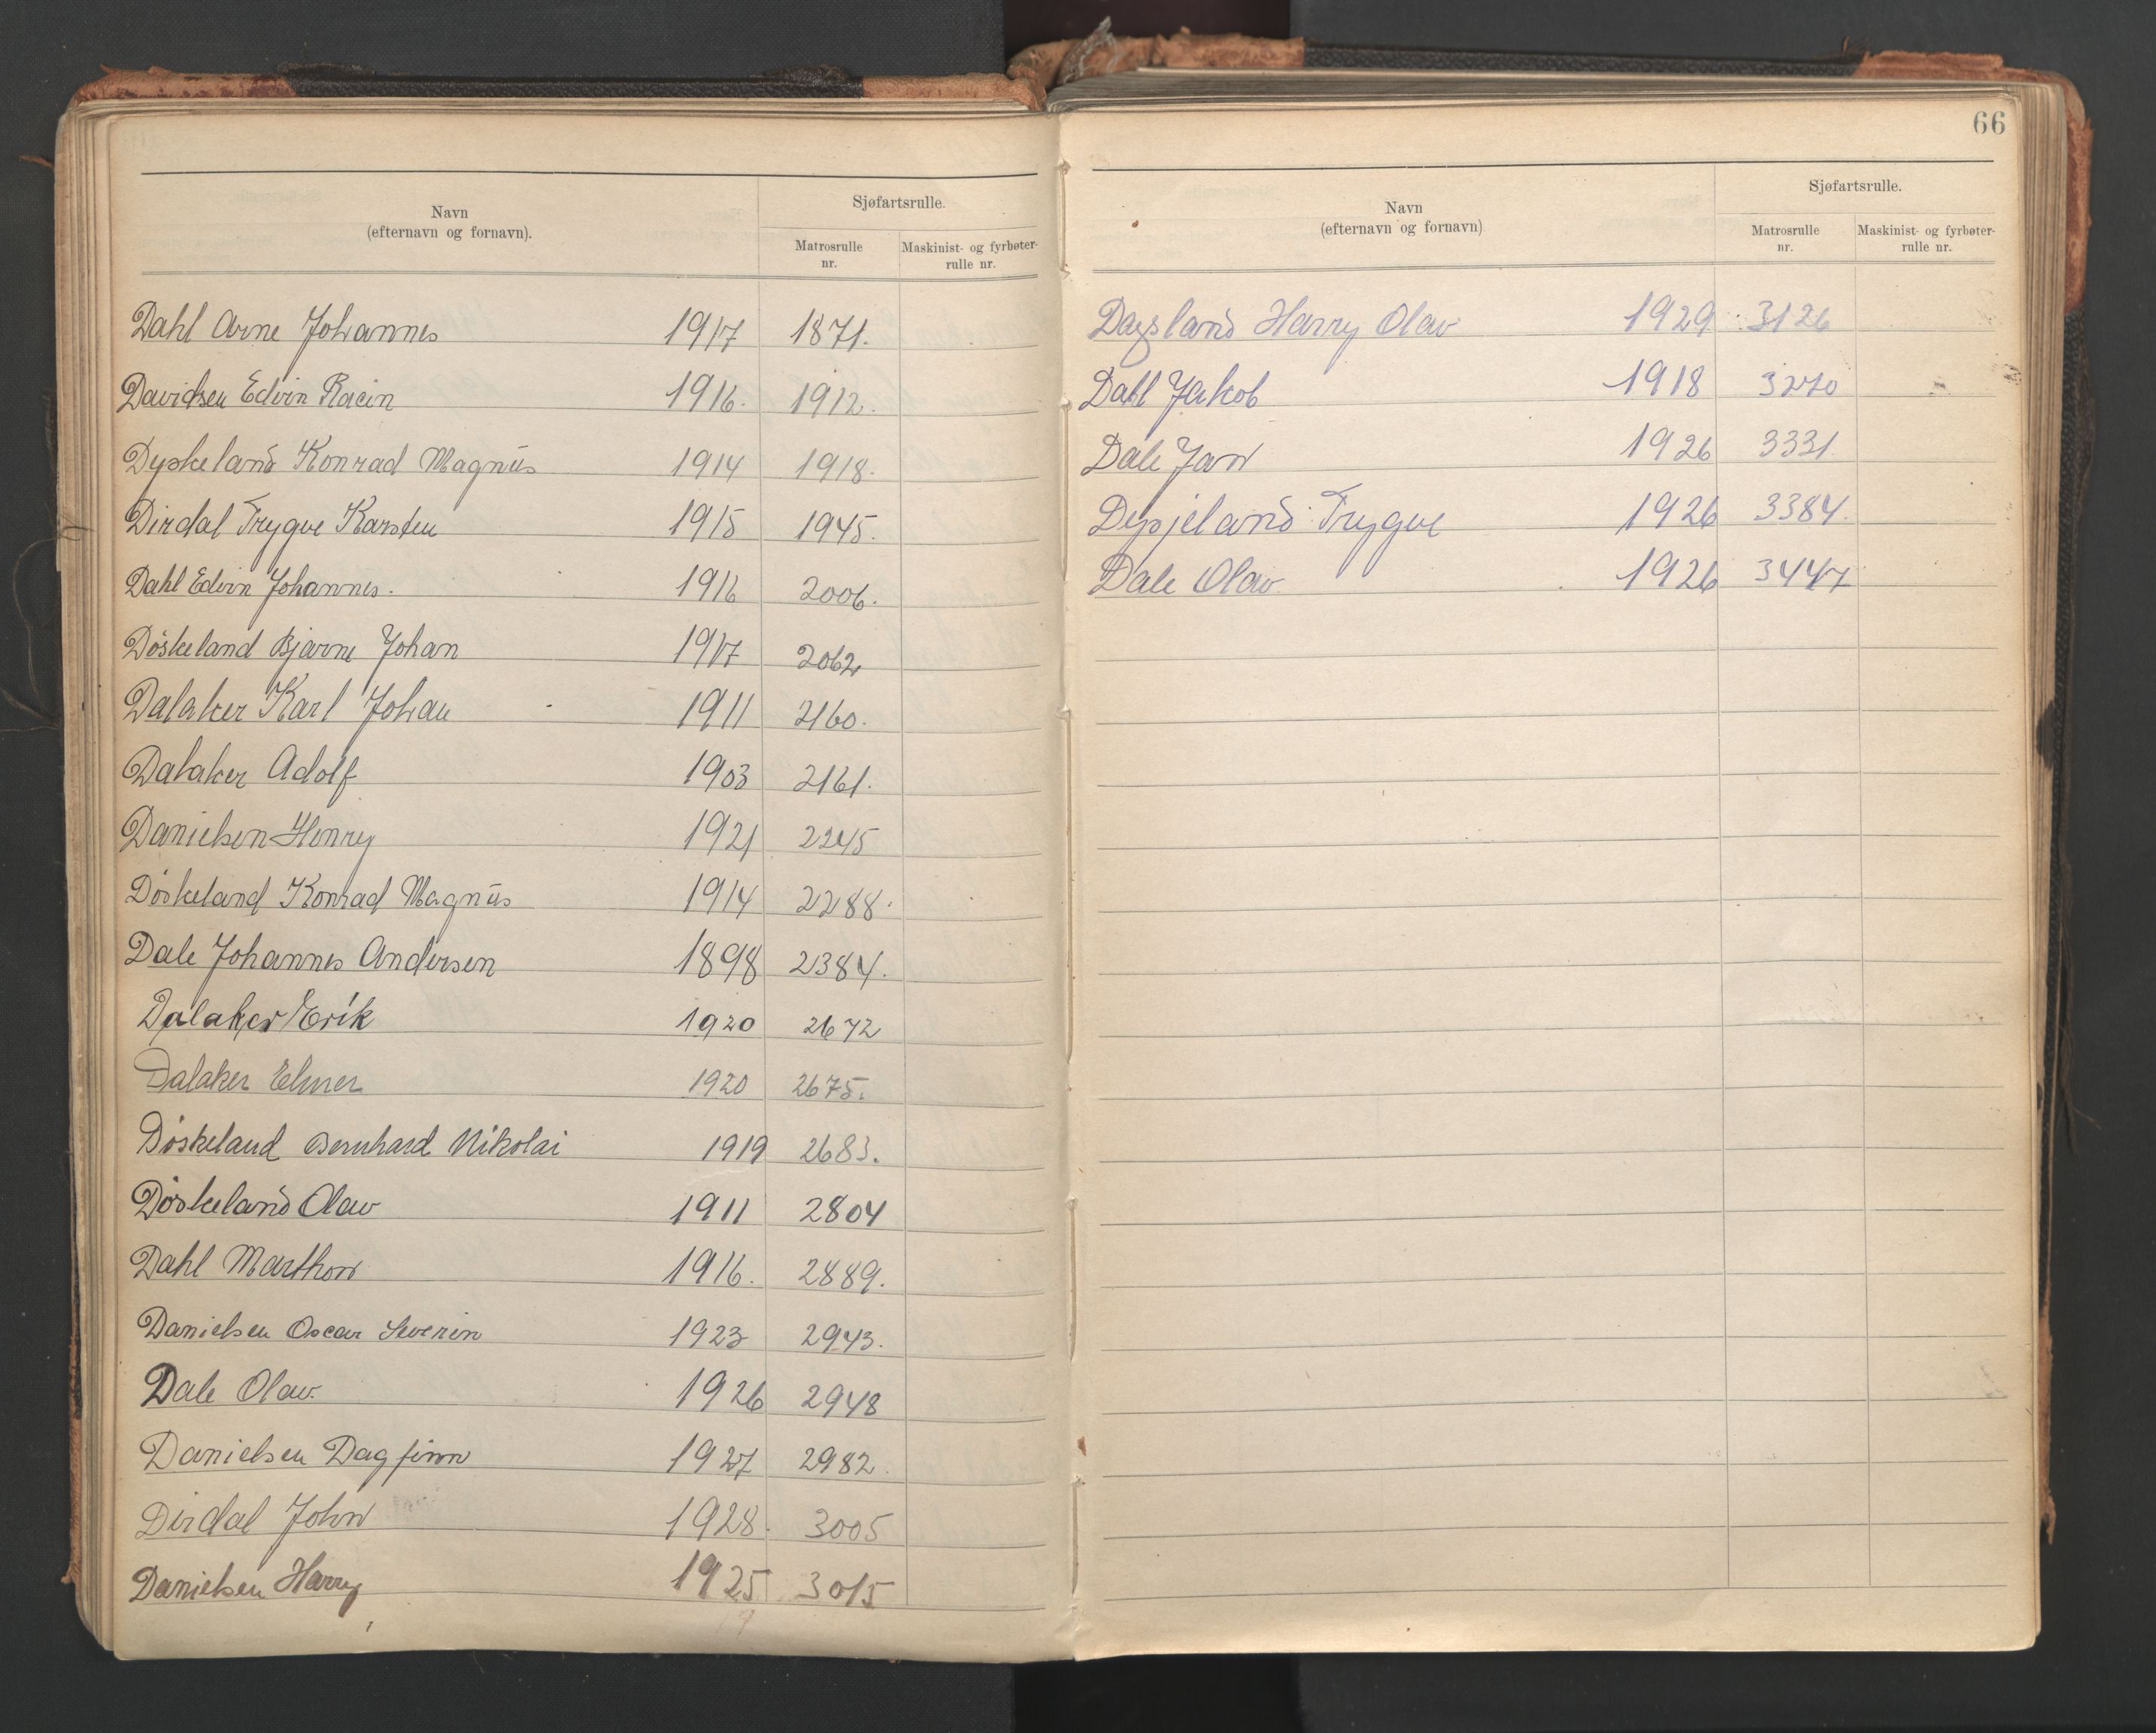 Navn
(efternavn og fornavn).
Sjøfartsrulle.
Matrosrulle
nr.
Maskinist- og fyrbøter-
rulle nr.
Dahl Arne Johannes 1917 1871.
Davidsen Edvin Racin 1916. 1912.
Dyskeland Konrad Magnus 1914 1918.
Dirdal Trygve Karsten 1915 1945.
Dahl Edvin Johannes. 1916 2006.
Döskeland Bjarne Johan 1917 2062
Dalaker Karl Johan 1911 2160.
Dalaker Adolf 1903 2161.
Danielsen Henry 1921 2245
Döskeland Konrad Magnus 1914 2288.
Dale Johannes Andersen 1898 2384.
Dalaker Erik 1920 2672
Dalaker Elmer 1920 2675.
Döskeland Bernhard Nikolai 1919 2683.
Döskeland Olav 1911 2804
Dahl Marthon 1916. 2889.
Danielsen Oscar Severin 1923 2943.
Dale Olav. 1926 2948
Danielsen Dagfinn 1927 2982.
Dirdal John 1928. 3005
Danielsen Harry 1925 3015
66
Navn
(efternavn og fornavn)
Sjøfartsrulle.
Matrosrulle
nr.
Maskinist- og fyrbøter-
rulle nr.
Dagsland Harry Olav 1929 3126
Dahl Jakob 1918 3270
Dale Jan 1926 3331.
Dysjeland Trygve 1926 3384.
Dale Olav. 1926 3447